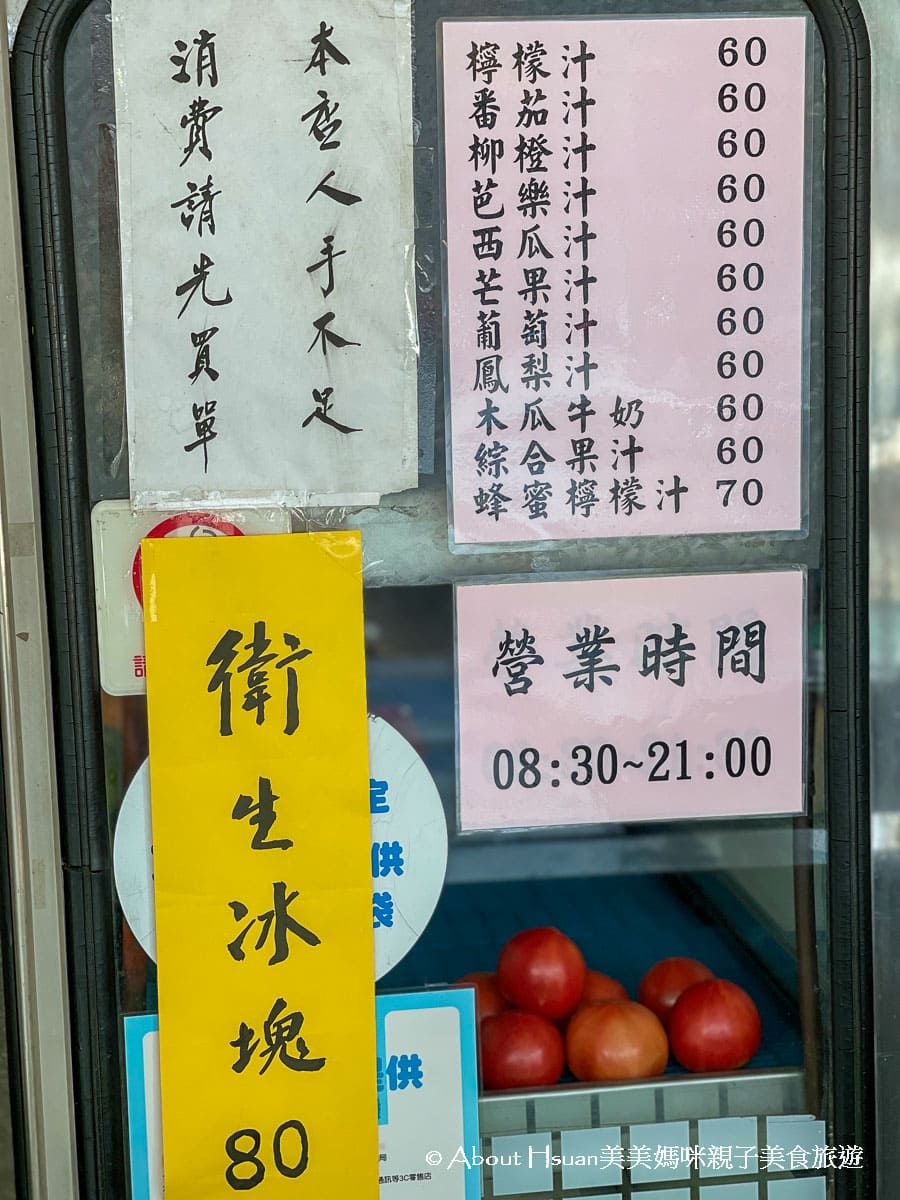 本店人手不足
消費請先買單
檸檬汁 60
番茄汁 60
柳橙汁 60
芭樂汁 60
西瓜汁 60
芒果汁 60
葡萄汁 60
鳳梨汁 60
木瓜牛奶 60
綜合果汁 60
蜂蜜檸檬汁 70
營業時間
08:30~21:00
衛生冰塊80
定
供
袋
提供
局
通訊等3C零售店
© About Hsuan美美媽咪親子美食旅遊